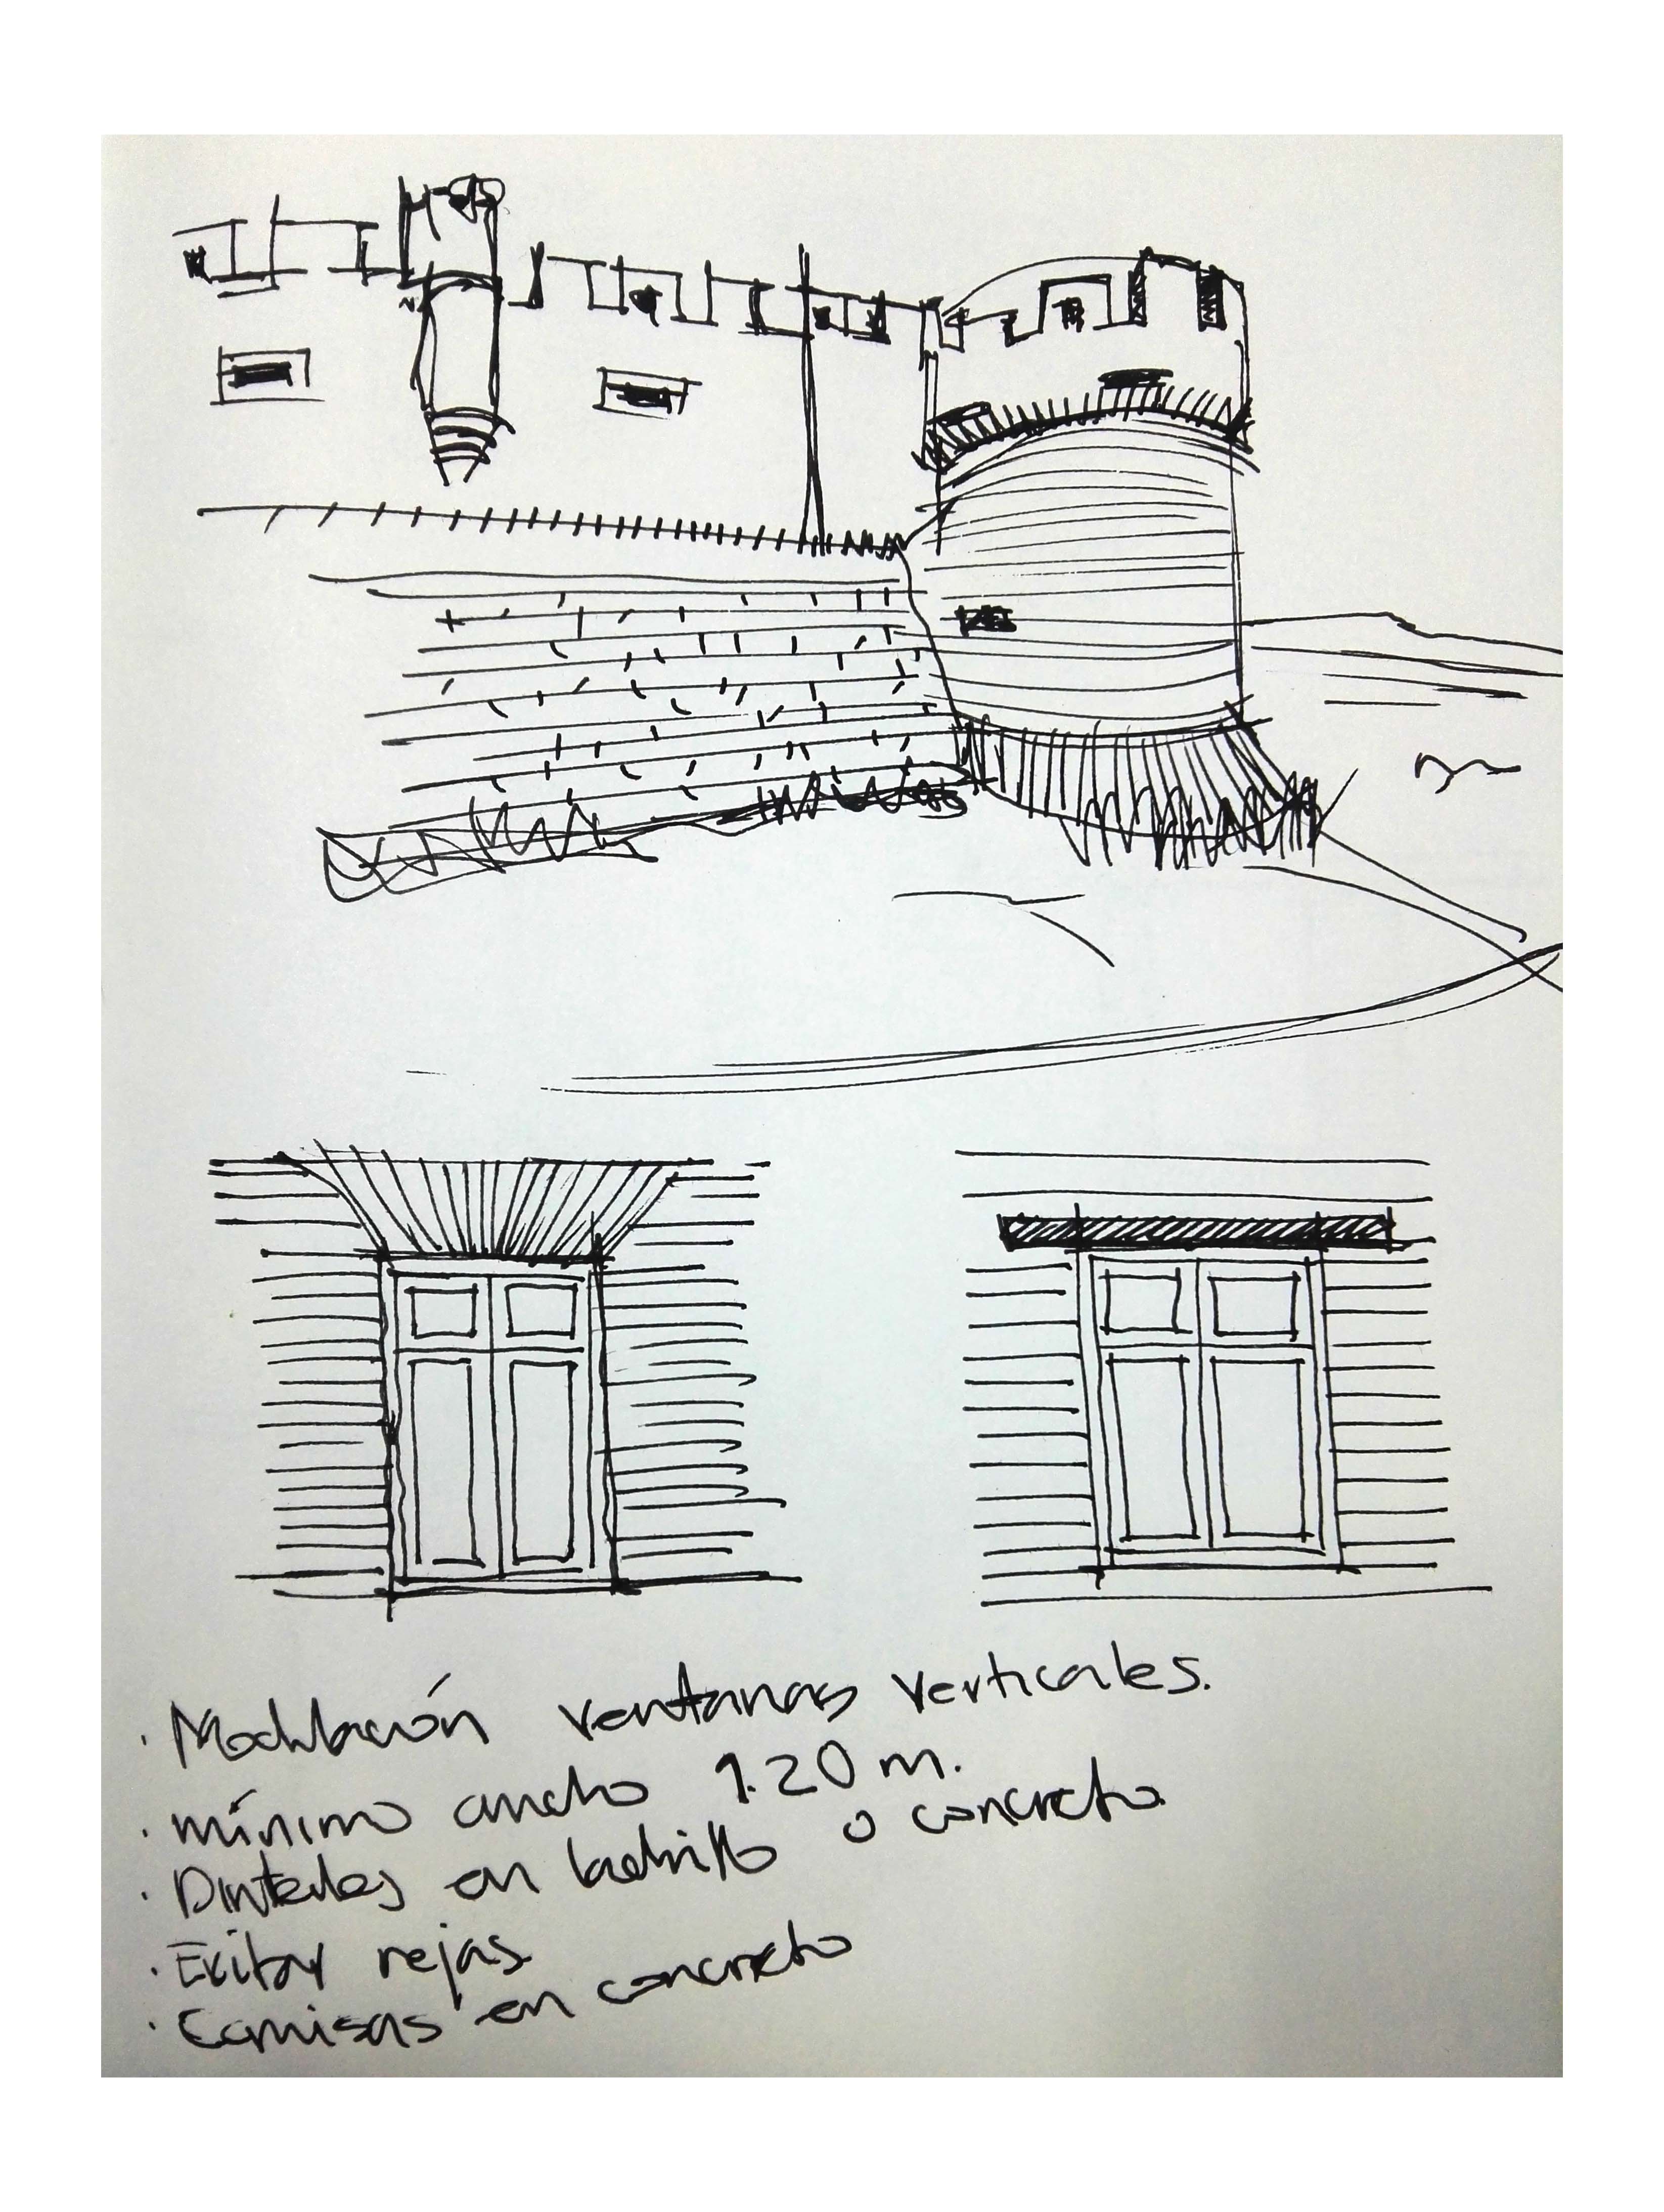 · Modulación ventanas verticales.
· mínimo ancho 1.20 m.
· Dinteles en ladrillo o concreto
· Evitar rejas
· Camisas en concreto